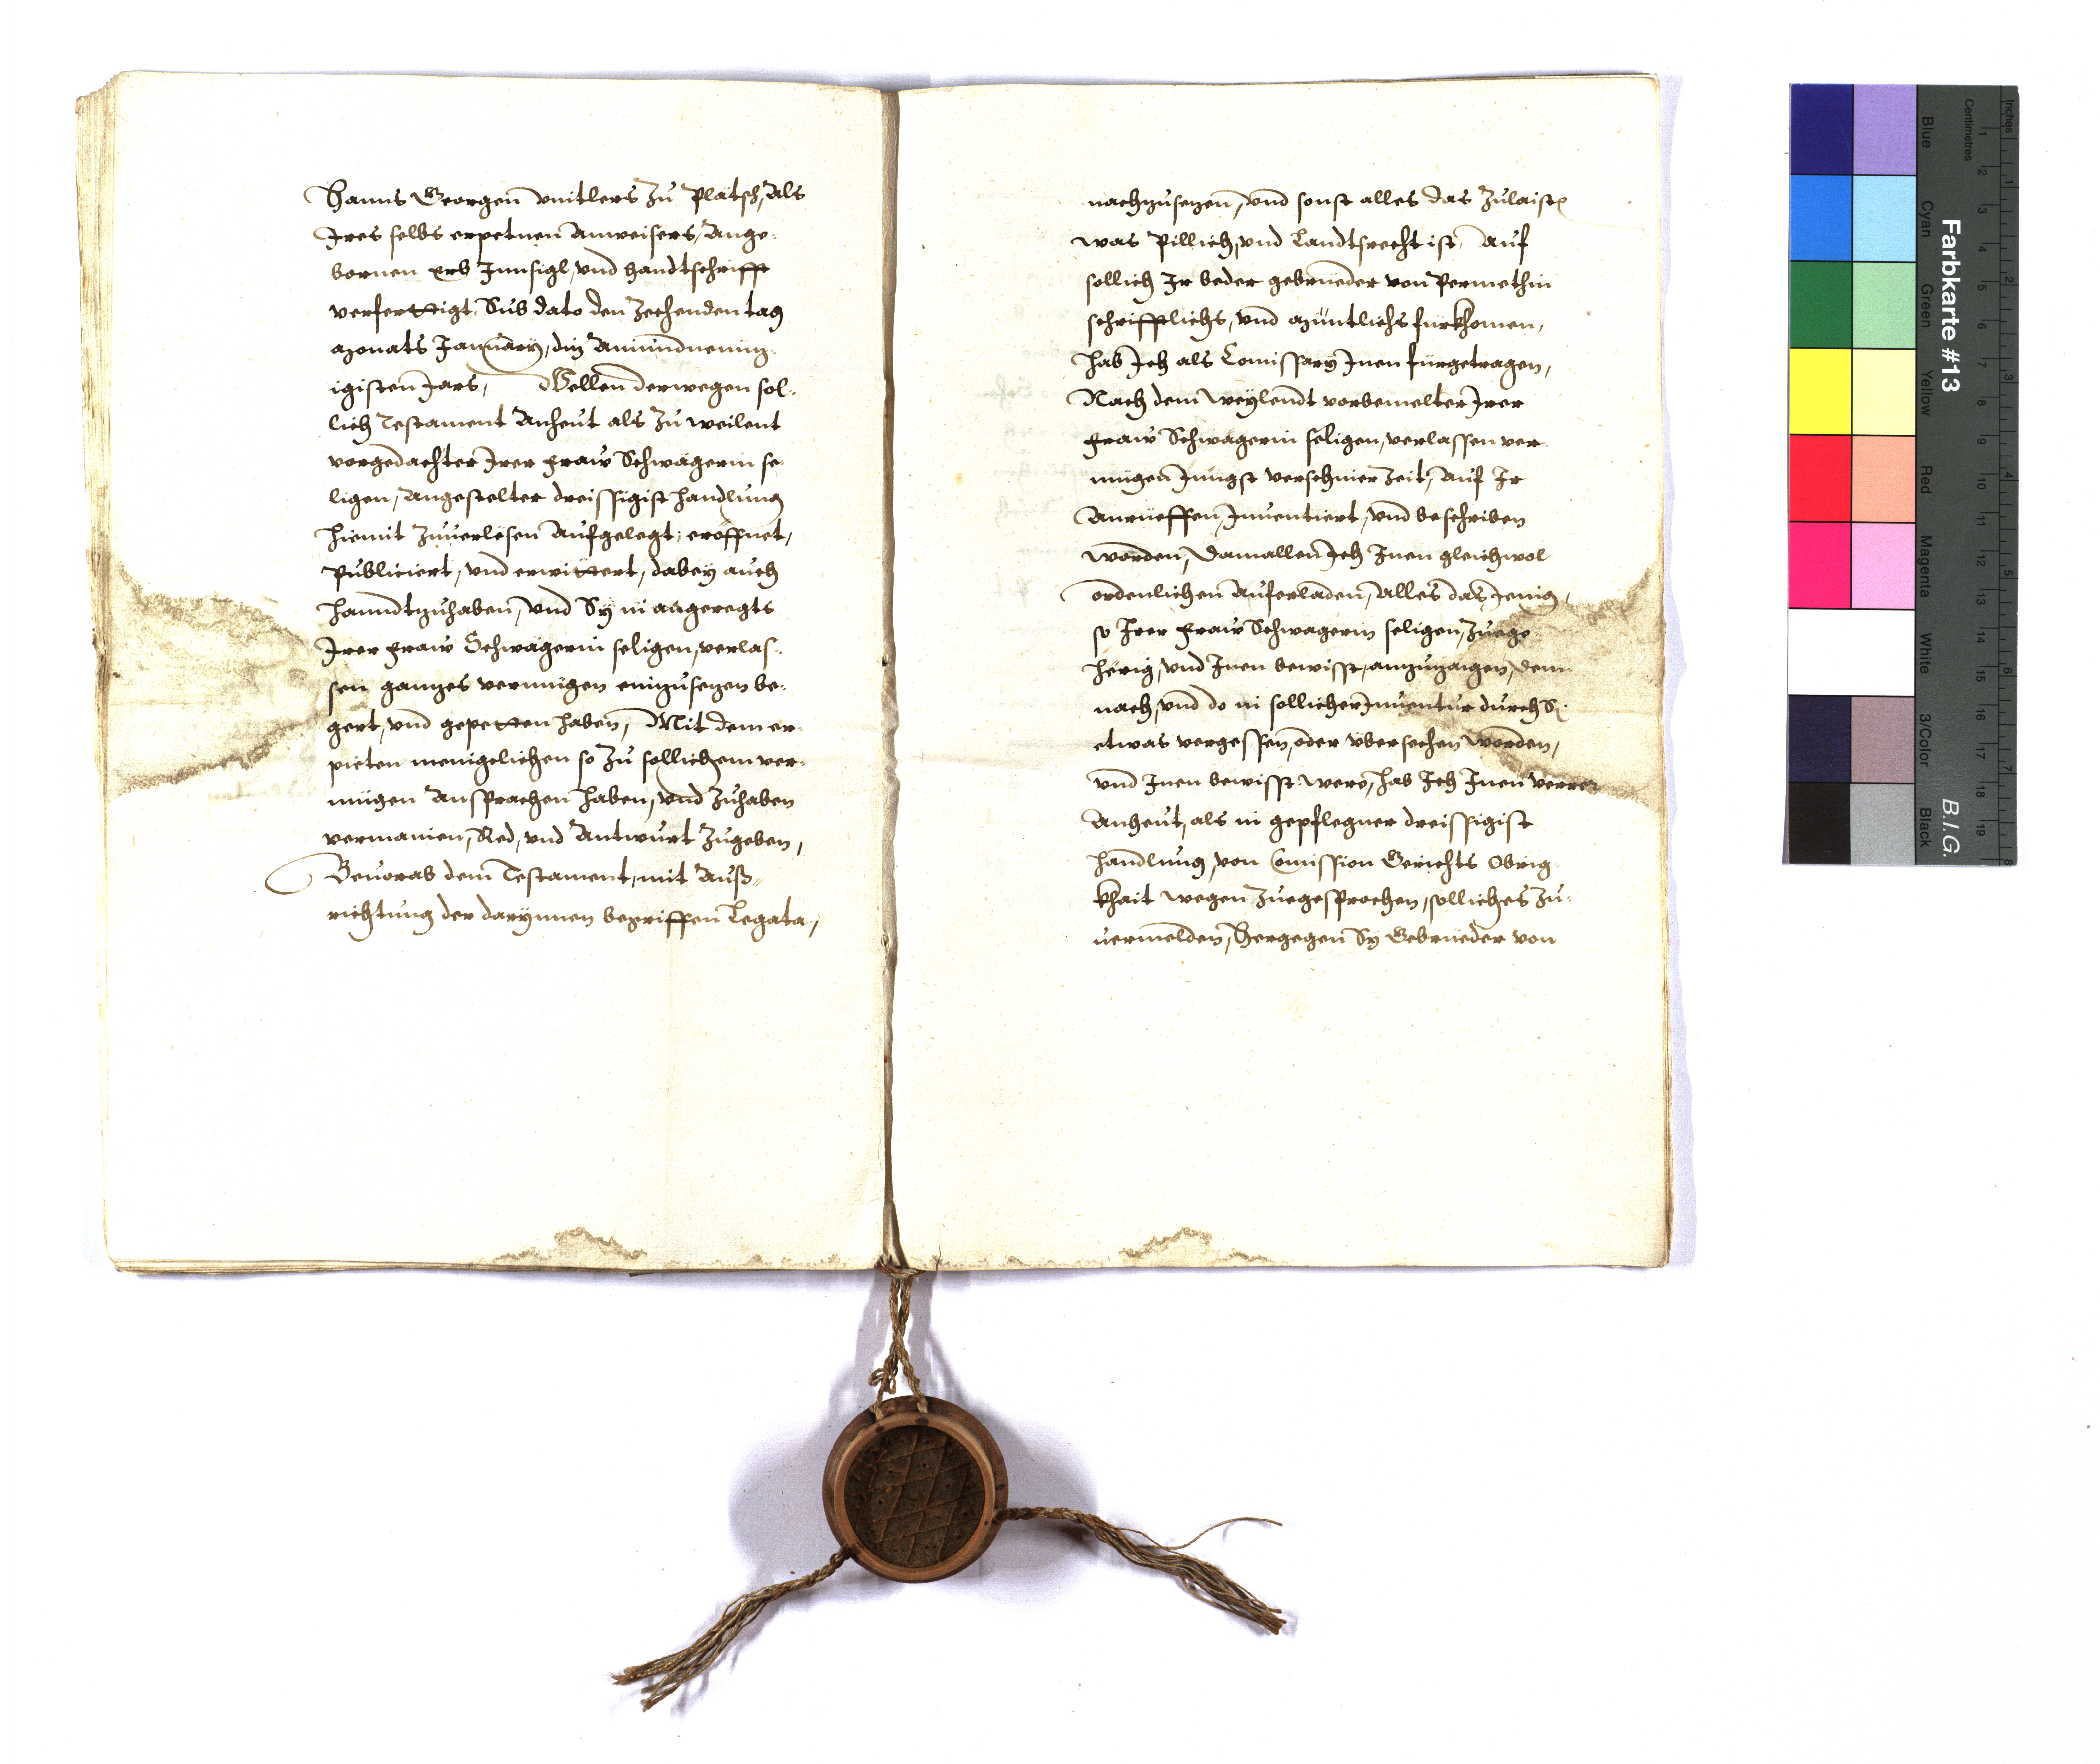 Hanns Georgen vnitlers zu Platsch, Als
Jres selbs erpetnen Anweisers, Ange-
bornen erb Innsigl, vnd Handtschrifft
verferttigt, Sub dato den Zechenden tag
Monats January, diz Ainundneunz-
igisten Jars, Wellen derwegen sol-
lich Testament Anheut als zu weilent
vorgedachter Jrer Fraw Schwägerin se-
ligen, Angestelter dreissigist Handlung
hiemit zuuerlesen Aufgelegt, eröffnet,
Publiciert, vnd erwittert, dabey auch
Hanndtzuhaben, vnd Sy in angeregts
Jrer Fraw Schwägerin seligen, verlas-
sen ganzes vermügen einzusezen be-
gert, vnd gepetten haben, Mit dem er-
pieten menigelichen so zu sollichem ver-
mügen Ansprachen haben, vnd zuhaben
vermainen, Red, vnd Antwurt zugeben,
Beuorab dem Testament, mit Auß-
richtung der darynnen begriffen Legata,
nachzusezen, vnd sonst alles das zulaisten
was Pillich, vnd Landtsrecht ist, Auf
sollich Jr beder gebrüeder von Permethin
schrifftlichs, vnd Müntlichs fürkhomen,
hab Jch als Comissary Jnen fürgetragen,
Nach dem Weylendt vorbemelter Jrer
Fraw Schwägerin seligen, verlassen ver-
mügen Jüngst verschiner zeit, Auf Jr
Anrüeffen, Jnuentiert, vnd beschriben
worden, Damallen Jch Jnen gleichwol
ordenlichen Auferladen, Alles das Jenig,
so Jrer Fraw Schwagerin seligen, zuege-
herig, vnd Jnen bewisst, anzuzaigen, dem-
nach, vnd do in sollicher Jnuentur durch Sy
etwas vergessen, oder vbersechen worden,
vnd Jnen bewisst were, hab Jch Jnen verrer
Anheut, als in gepflegner dreissigist
Handlung, von Comission Gerichts Obrig-
khait wegen zuegesprochen, solliches zu-
uermelden, Hergegen Sy Gebrüeder von
Farbkarte #13
B.I.G.
Inches
Centimetres
Blue
Cyan
Green
Yellow
Red
Magenta
White
3/Color
Black
1 2 3 4 5 6 7 8 9 10 11 12 13 14 15 16 17 18 19
1 2 3 4 5 6 7 8